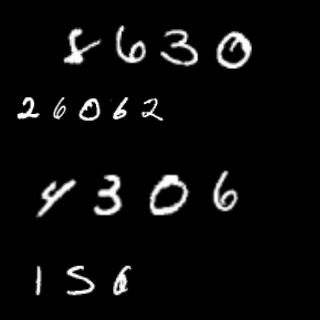 8630
26062
4306
156